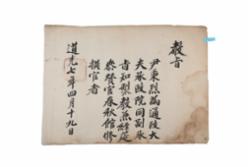 敎旨
尹秉烈爲通政大
夫承政院同副承
旨知製敎兼經筵
參贊官春秋館修
撰官者
道光七年四月十九日